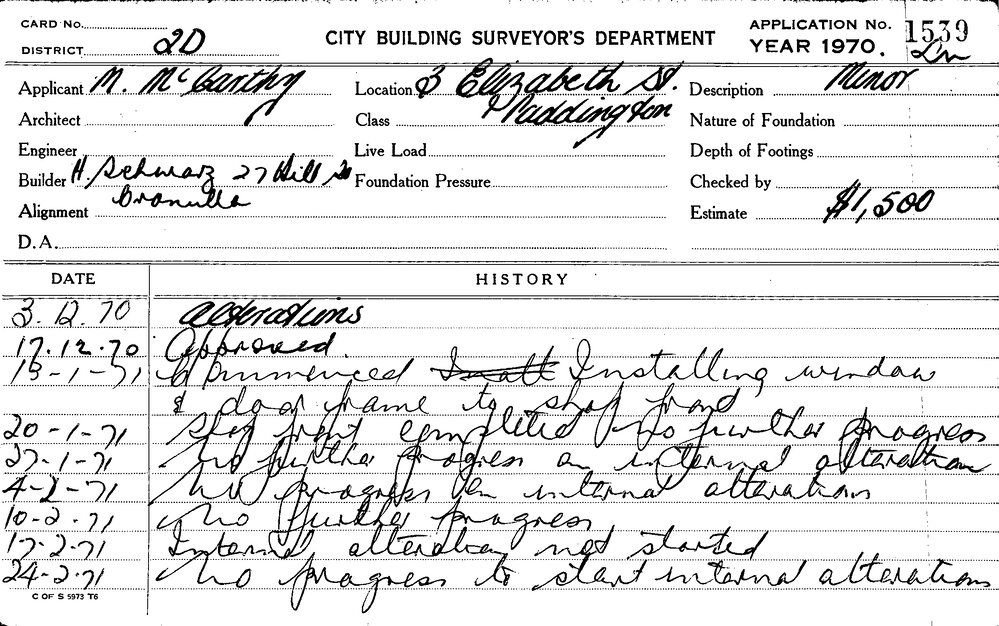 CARD No.
DISTRICT 2D
CITY BUILDING SURVEYOR'S DEPARTMENT
APPLICATION No. 1539
YEAR 1970. Ln
Applicant M. McCarthy
Location 3 Elizabeth St.
Paddington
Description Minor
Architect
Class
Nature of Foundation
Engineer
Live Load
Depth of Footings
Builder H. Schwarz 27 Hill St
Cronulla
Foundation Pressure
Checked by
Alignment
Estimate $1,500
D.A.
DATE HISTORY
3.12.70 Alterations
17.12.70 Approved.
13-1-71 Commenced Installing window
& door frame to shop front
20-1-71 Shop front completed No further progress
27-1-71 No further progress on internal alteration
4-2-71 No progress on internal alterations
10-2-71 No further progress
17-2-71 Internal alteration not started
24-2-71 No progress to start internal alterations
C OF S 5973 T6